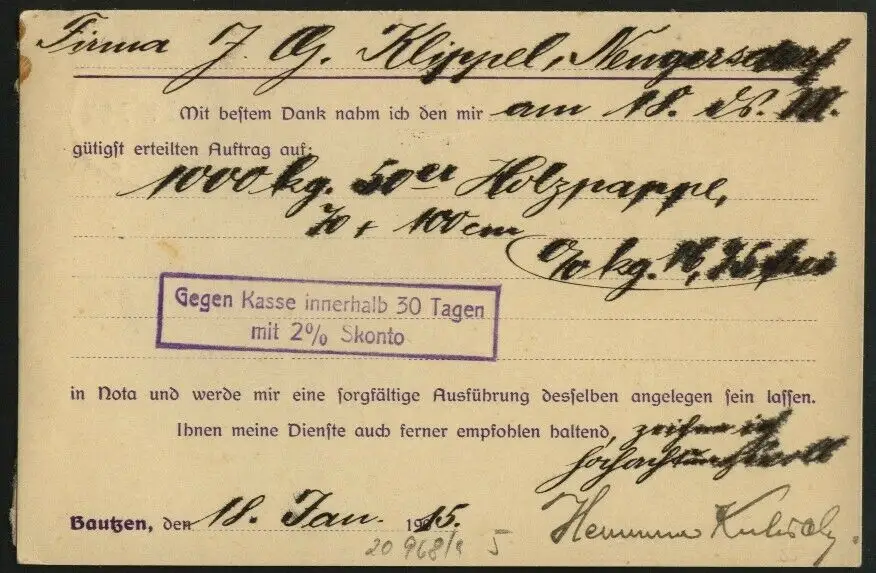 Firma J. G. Klippel, Neugersdorf
Mit bestem Dank nahm ich den mir am 18. ds. M.
gütigst erteilten Auftrag auf:
1000 kg. 50er Holzpappe,
70 + 100 cm
% kg. 75 frei
Gegen Kasse innerhalb 30 Tagen
mit 2% Skonto
in Nota und werde mir eine sorgfältige Ausführung desselben angelegen sein lassen.
Ihnen meine Dienste auch ferner empfohlen haltend, zeichne ich
hochachtungsvoll
Bautzen, den 18. Jan. 1915.
20 968/9 5